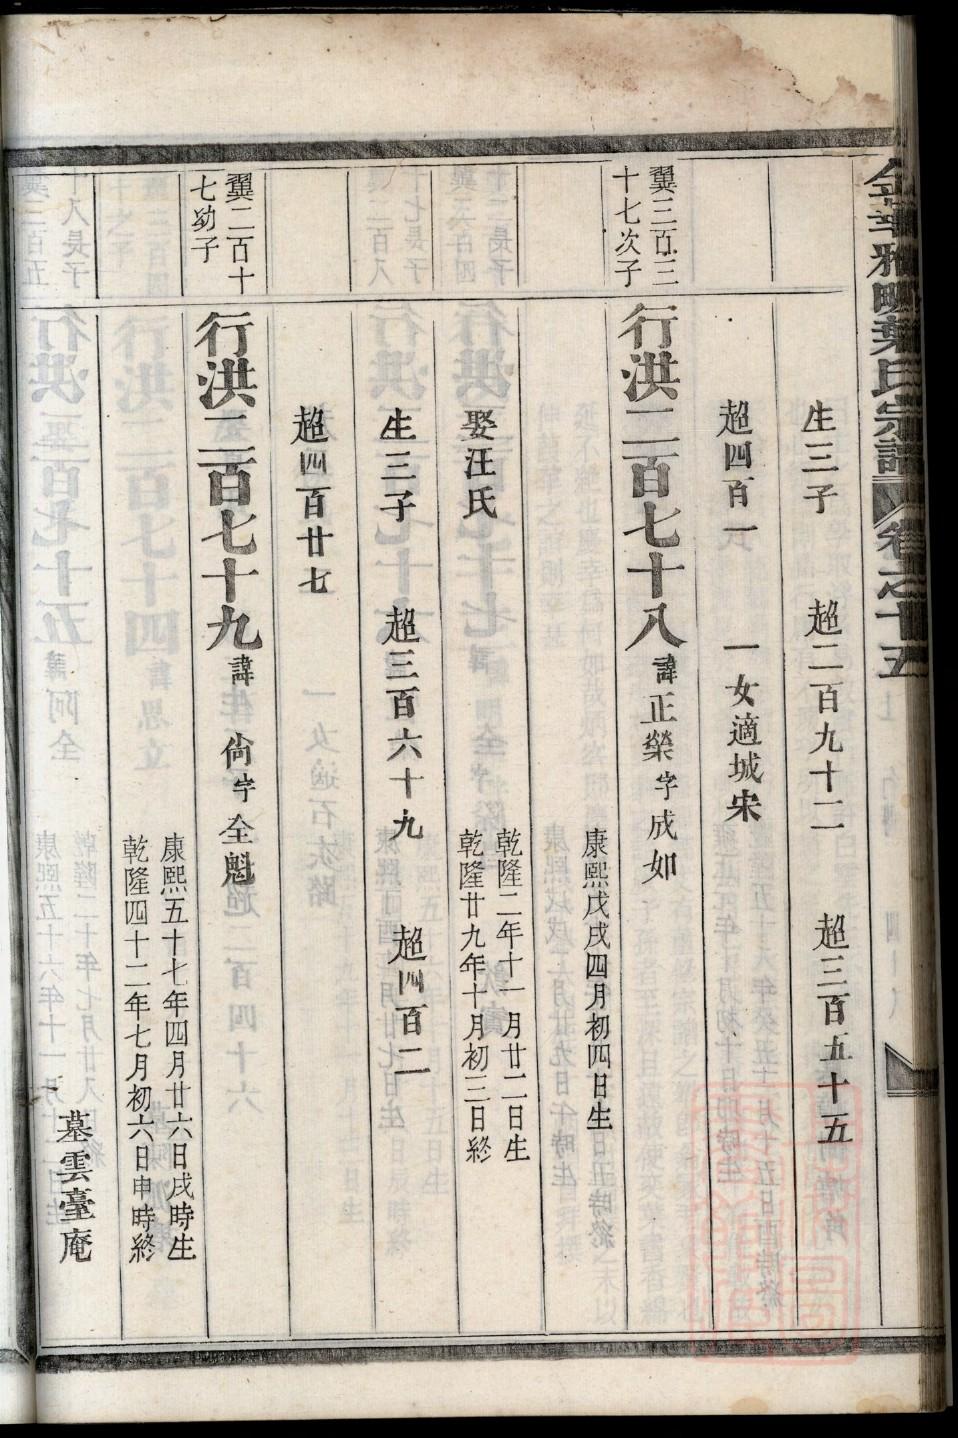 金華雅畈葉氏宗譜 卷之十五
生三子 超二百九十二 超三百五十五
超四百一 一女適城宋
翼三百三十七次子
行洪二百七十八 諱正榮字成如
康熙戊戌四月初四日生
娶汪氏
乾隆二年十一月廿二日生
乾隆廿九年十月初三日終
生三子 超三百六十九 超四百二
超四百廿七
翼二百十七幼子
行洪二百七十九 諱尙字全魁
康熙五十七年四月廿六日戌時生
乾隆四十二年七月初六日申時終
墓雲臺庵